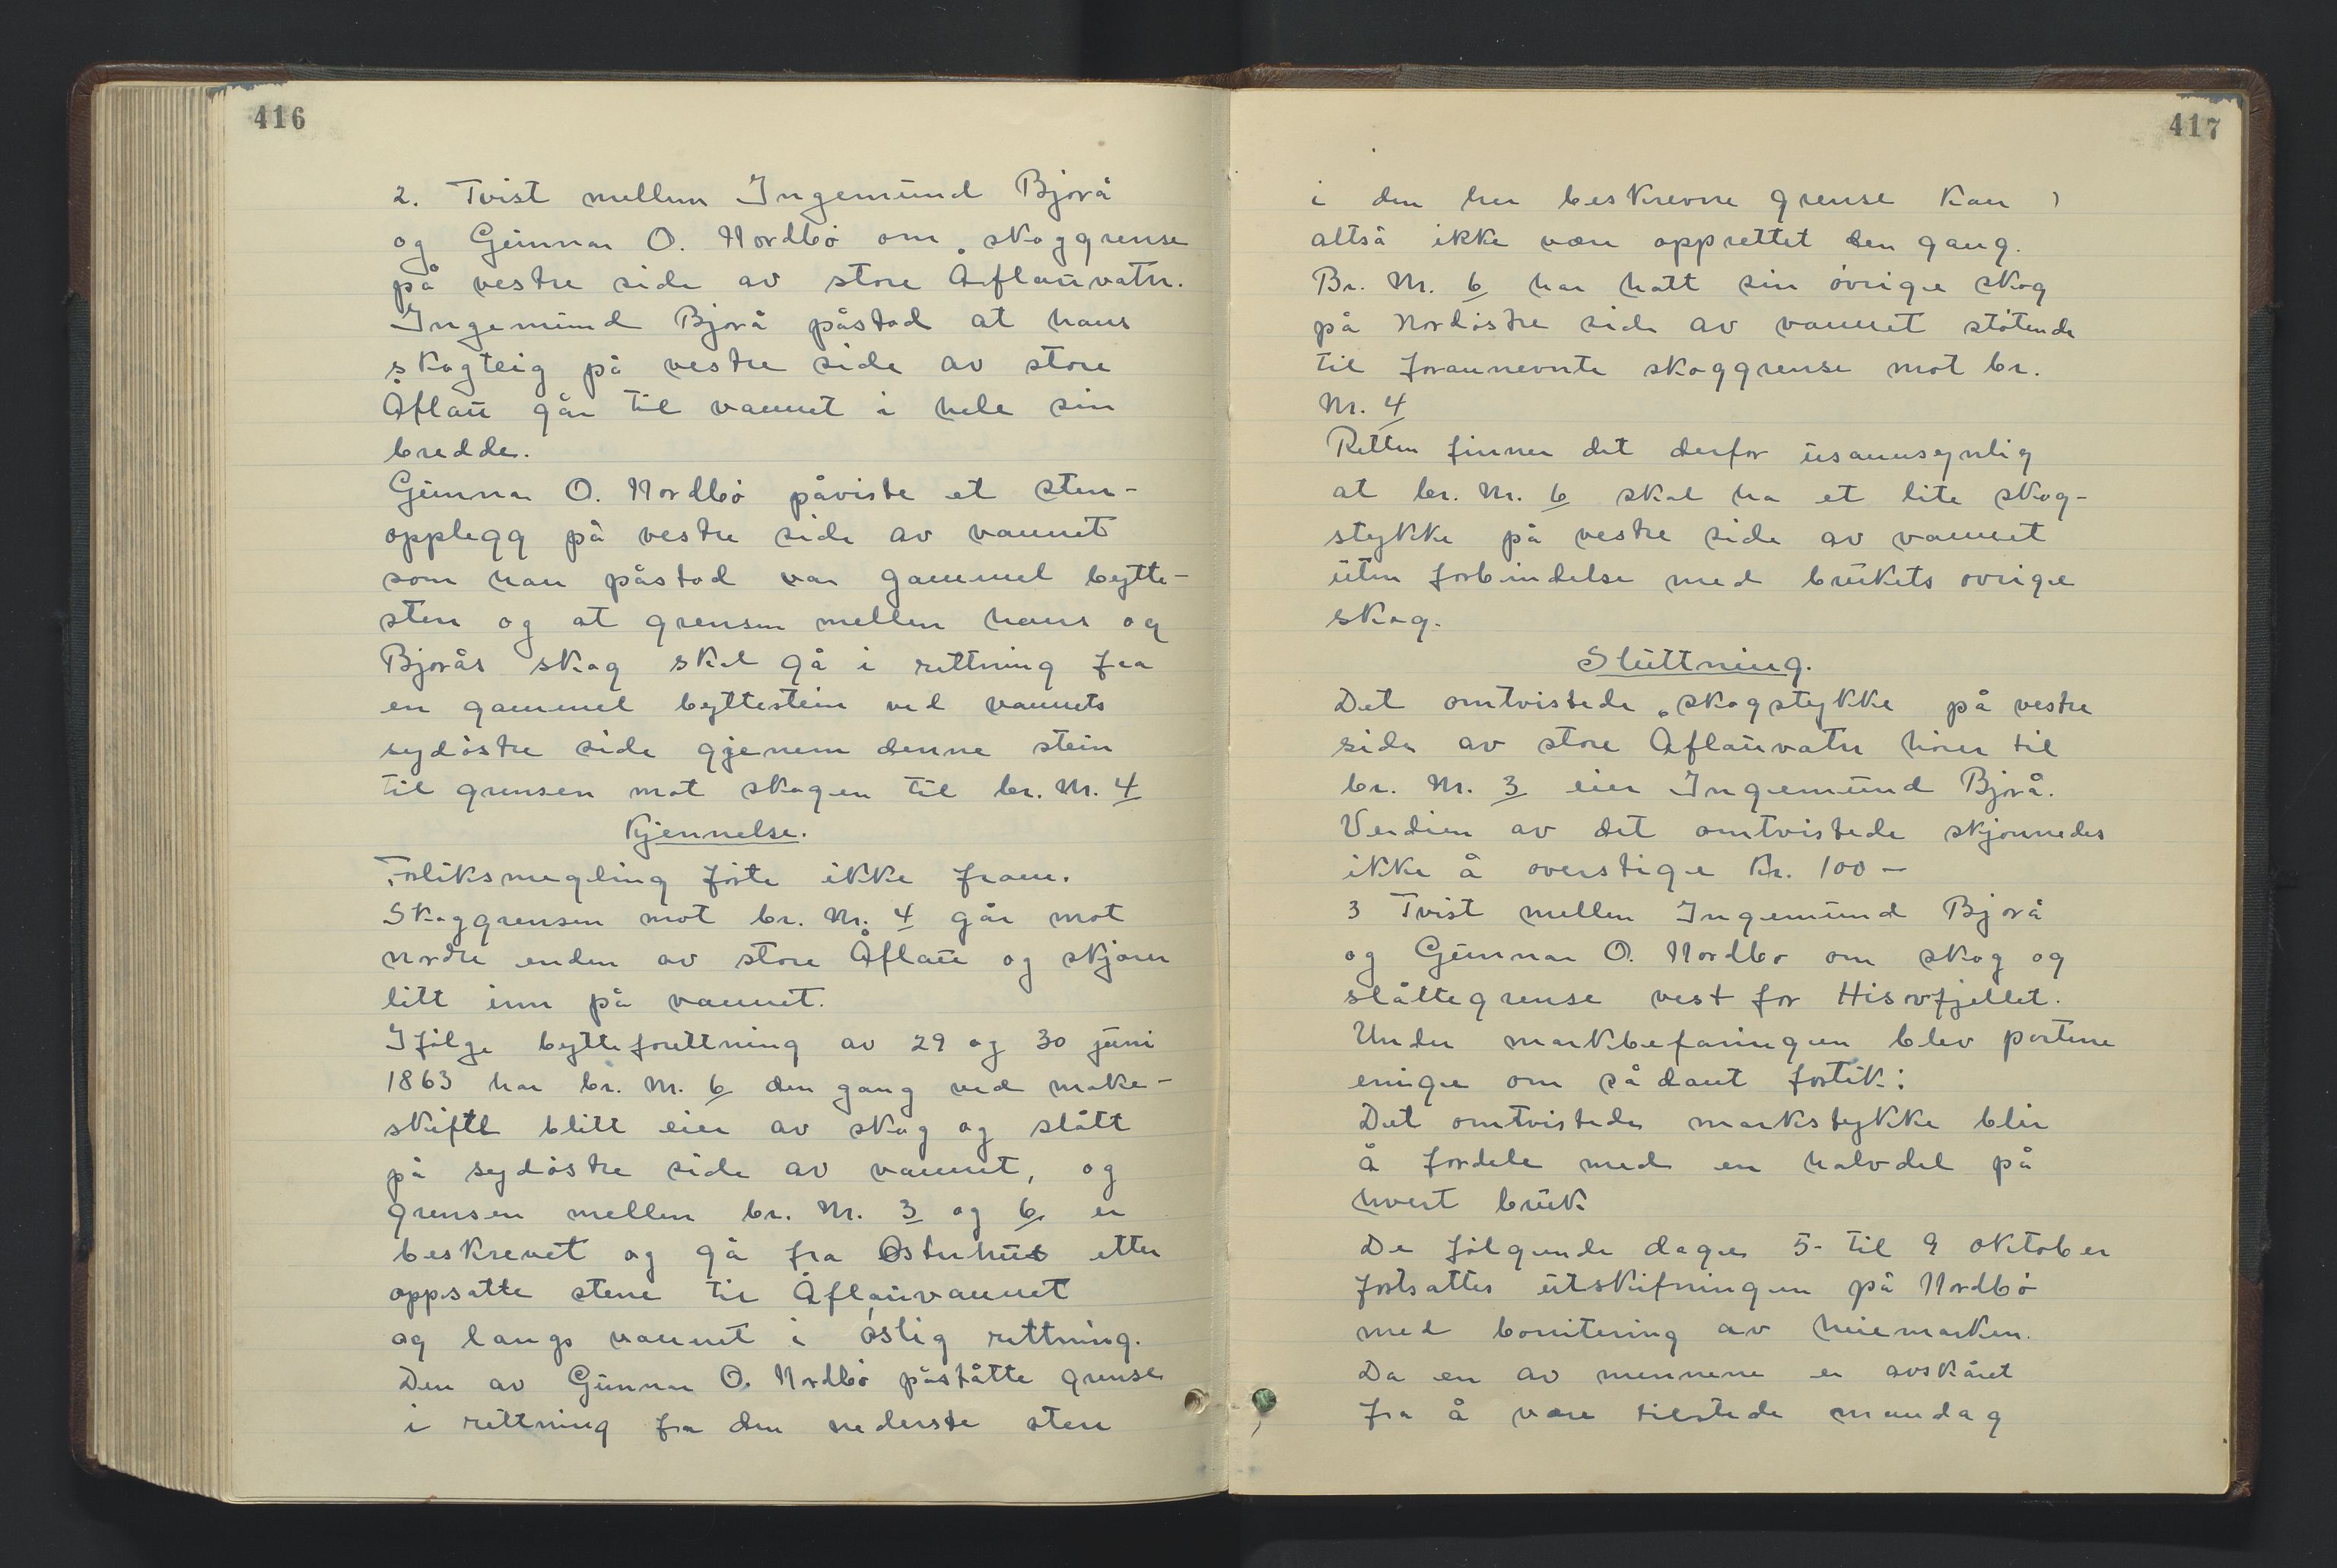 416
2. Tvist mellem Ingemund Bjorå
og Gunnar O. Nordbø om skoggrense
på vestre side av store Åflauvatn.
Ingemund Bjorå påstod at hans
skogteig på vestre side av store
Åflau går til vannet i hele sin
bredde.
Gunnar O. Nordbø påviste et sten-
opplegg på vestre side av vannet
som han påstod var gammel bytte-
sten og at grensen mellem hans og
Bjorås skog skal gå i rettning fra
en gammel byttestein ved vannets
sydøstre side gjenem denne stein
til grensen mot skogen til br. Nr. 4
Kjennelse.
Forliksmegling førte ikke fram.
Skoggrensen mot br. Nr. 4 går mot
nordre enden av store Åflau og skjærer
litt inn på vannet.
Ifølge bytteforettning av 29 og 30 juni
1863 har br. Nr. 6 den gang ved make-
skifte blitt eier av skog og slått
på sydøstre side av vannet, og
grensen mellem br. Nr. 3 og 6 er
beskrevet og gå fra Østerhus etter
oppsatte stene til Åflauvannet
og langs vannet i østlig rettning.
Den av Gunnar O. Nordbø påståtte grense
i rettning fra den nederste sten
417
i den her beskrevne grense kan
altså ikke være opprettet den gang.
Br. Nr. 6 har hatt sin øvrige skog
på Nordøstre side av vannet støtende
til forannevnte skoggrense mot br.
Nr. 4
Retten finner det derfor usannsynlig
at br. Nr. 6 skal ha et lite skog-
stykke på vestre side av vannet
uten forbindelse med brukets øvrige
skog.
Sluttning.
Det omtvistede skogstykke på vestre
side av store Åflauvatn hører til
br. Nr. 3 eier Ingemund Bjorå.
Verdien av det omtvistede skjønnedes
ikke å overstige Kr. 100 —
3 Tvist mellem Ingemund Bjorå
og Gunnar O. Nordbø om skog og
slåttegrense vest for Hisovfjellet.
Under markbefaringen blev partene
enige om sådant forlik:
Det omtvistede markstykke blir
å fordele med en halvdel på
hvert bruk
De følgende dager 5- til 9 oktober
fortsattes utskifningen på Nordbø
med bonitering av heiemarken.
Da en av mennene er avskåret
fra å være tilstede mandag